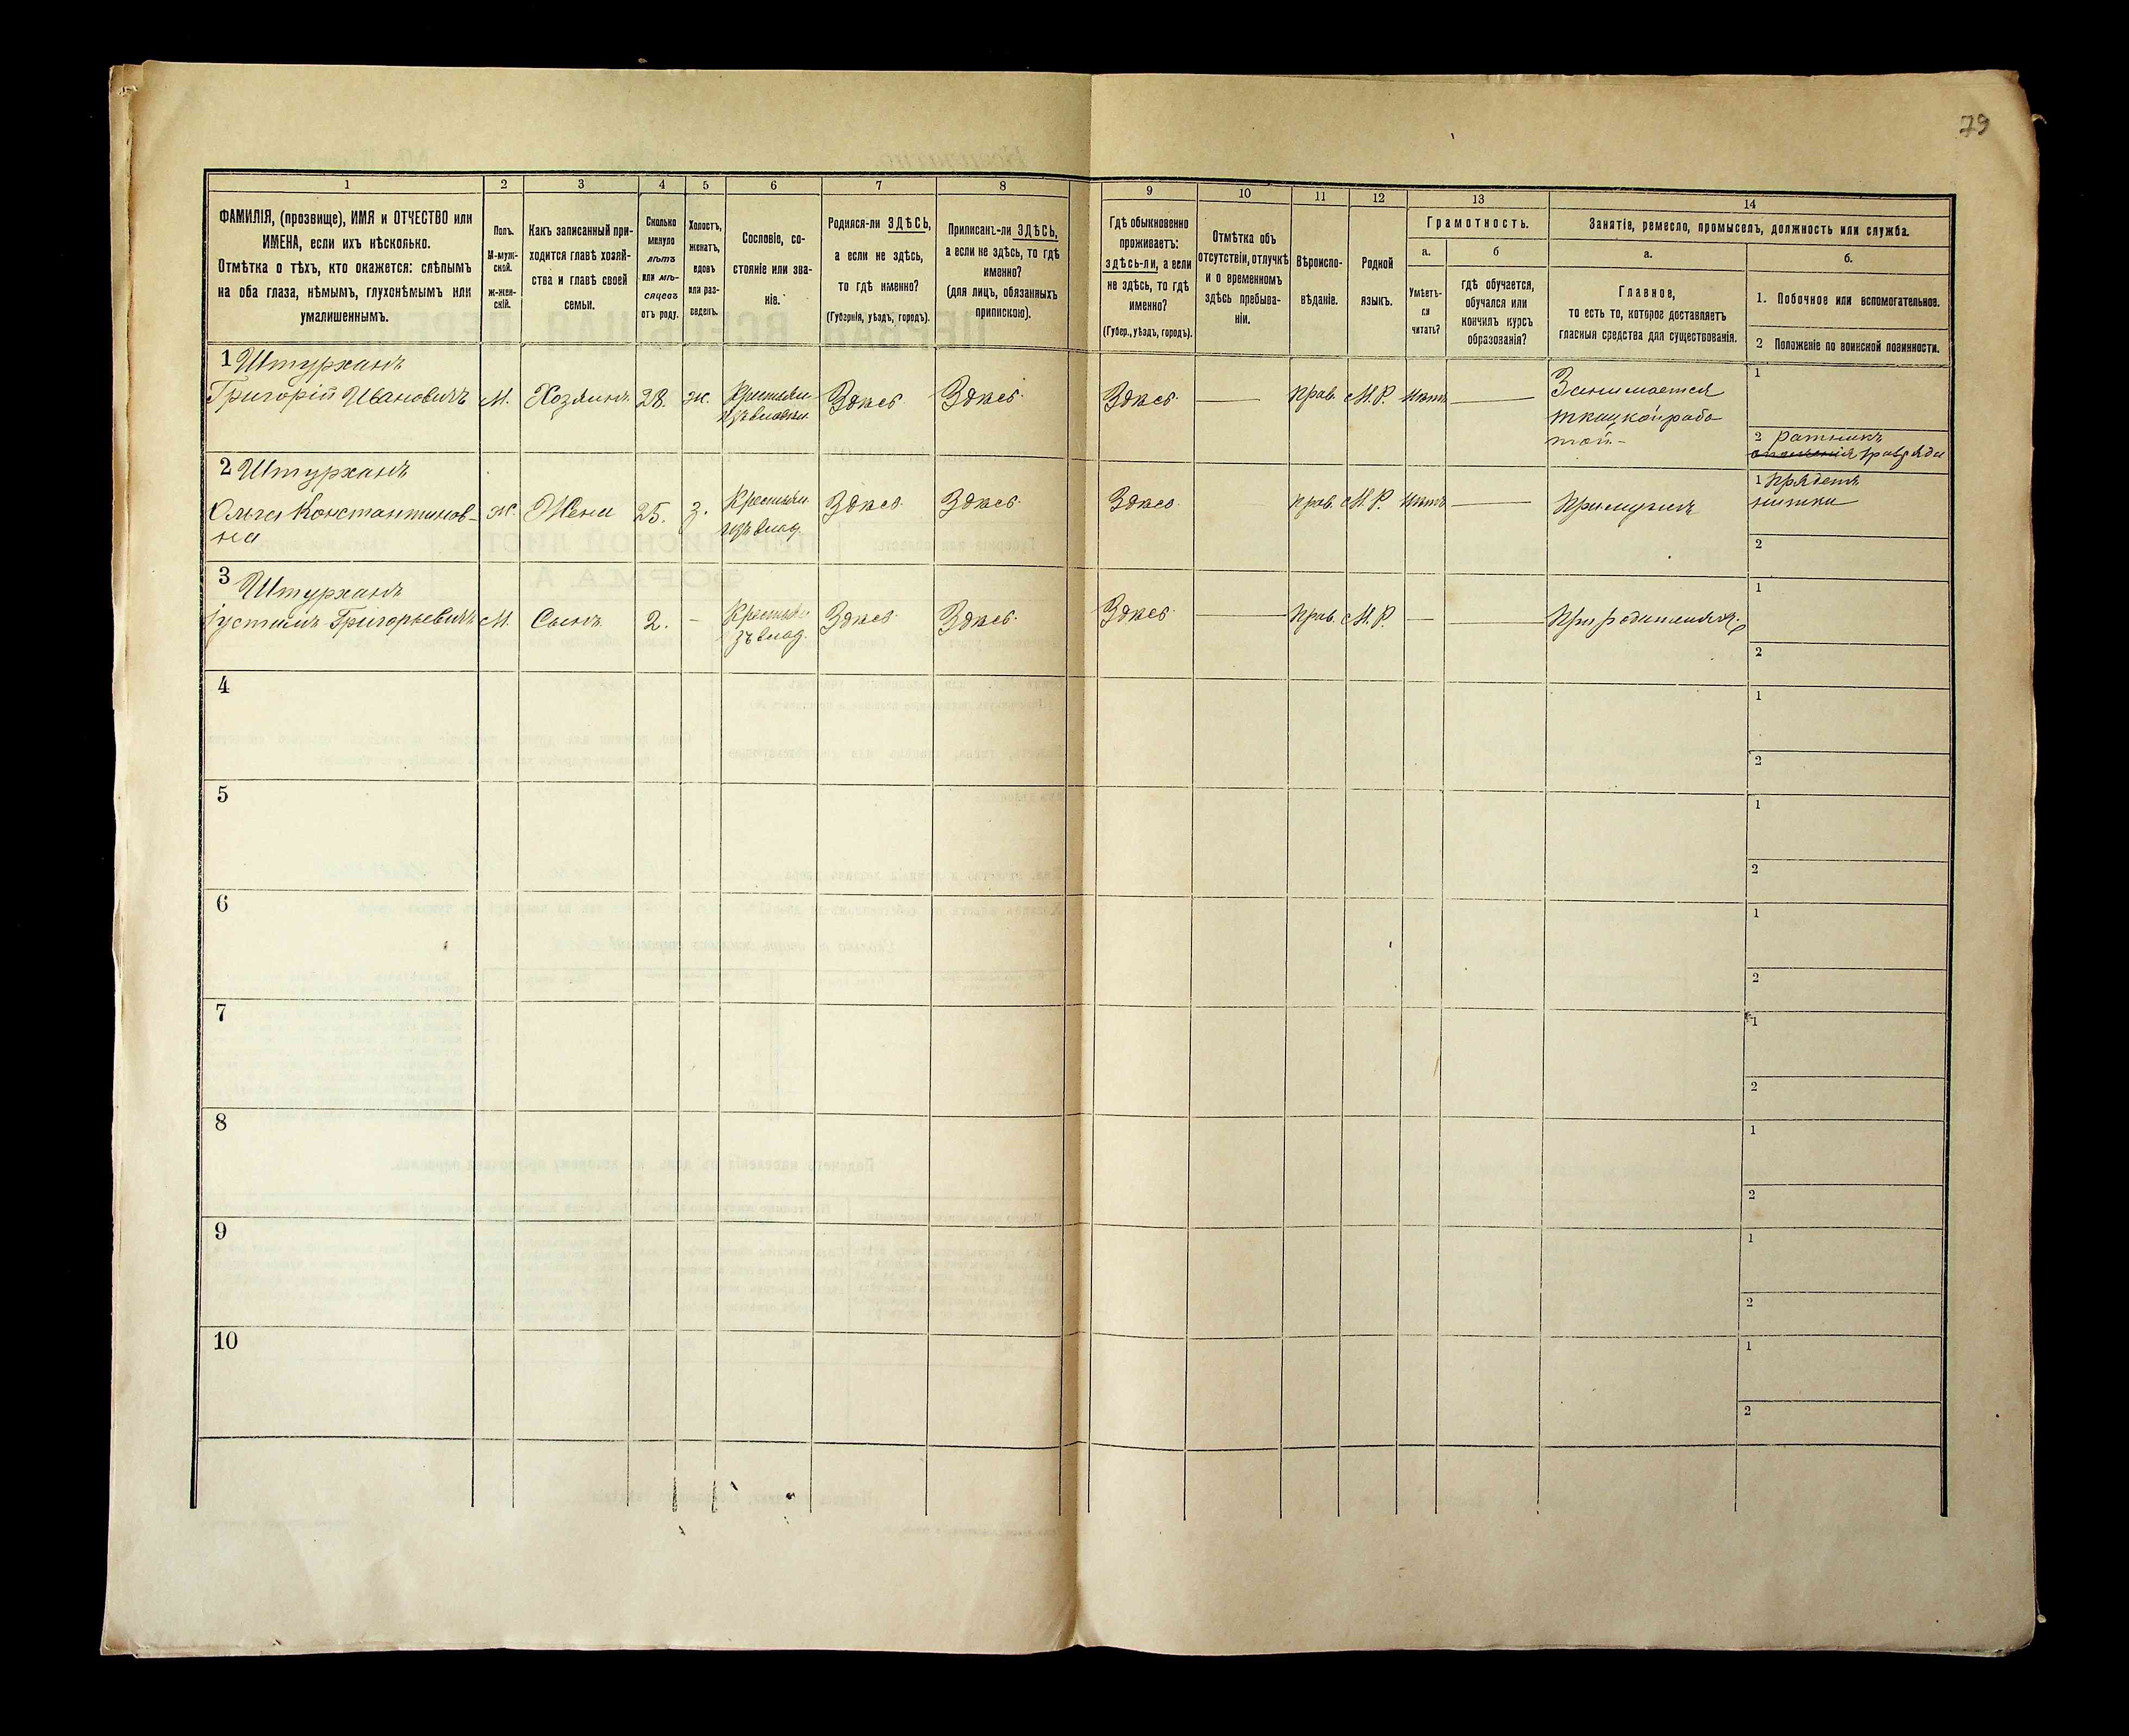 79
1 2 3 4 5 6 7 8 9 10 11 12 13 14
ФАМИЛІЯ, (прозвище), ИМЯ и ОТЧЕСТВО или
ИМЕНА, если ихъ нѣсколько.
Отмѣтка о тѣхъ, кто окажется: слѣпымъ
на оба глаза, нѣмымъ, глухонѣмымъ или
умалишеннымъ.
Полъ.
М-муж-
ской.
ж-жен-
скій.
Какъ записанный при-
ходится главѣ хозяй-
ства и главѣ своей
семьи.
Сколько
минуло
лѣтъ
или мѣ-
сяцевъ
отъ роду.
Холостъ,
женатъ,
вдовъ
или раз-
веденъ.
Сословіе, со-
стояніе или зва-
ніе.
Родился-ли ЗДѢСЬ,
а если не здѣсь,
то гдѣ именно?
(Губернія, уѣздъ, городъ).
Приписанъ-ли ЗДѢСЬ,
а если не здѣсь, то гдѣ
именно?
(для лицъ, обязанныхъ
припискою).
Гдѣ обыкновенно
проживаетъ:
здѣсь-ли, а если
не здѣсь, то гдѣ
именно?
(Губер., уѣздъ, городъ).
Отмѣтка объ
отсутствіи, отлучкѣ
и о временномъ
здѣсь пребыва-
ніи.
Вѣроиспо-
вѣданіе.
Родной
языкъ.
Грамотность.
а.
Умѣетъ-
ли
читать?
б
гдѣ обучается,
обучался или
кончилъ курсъ
образованія?
Занятіе, ремесло, промыселъ, должность или служба.
а.
Главное,
то есть то, которое доставляетъ
главныя средства для существованія.
б.
1. Побочное или вспомогательное.
2 Положеніе по воинской повинности.
1 Штурханъ
Григорій Ивановичъ М. Хозяинъ 28. ж. Крестьян. Здѣсь. Здѣсь. Здѣсь. — прав. М.Р. нѣтъ — Занимается
изъ владѣл. ткацкой рабо
той.-
1
2 ратникъ
ополченія 1 разряда
2 Штурханъ
Ольга Константинов- ж. Жена 25. з. Крестьян. Здѣсь. Здѣсь. Здѣсь. прав. М.Р. нѣтъ — При мужѣ
на изъ влад.
1 прядетъ
нитки
2
3 Штурханъ
Іустинъ Григорьевичъ М. Сынъ 2. - Крестьян Здѣсь. Здѣсь. Здѣсь. — Прав. М.Р. — — При родителяхъ.
изъ влад.
1
2
4
1
2
5
1
2
6
1
2
7
1
2
8
1
2
9
1
2
10
1
2